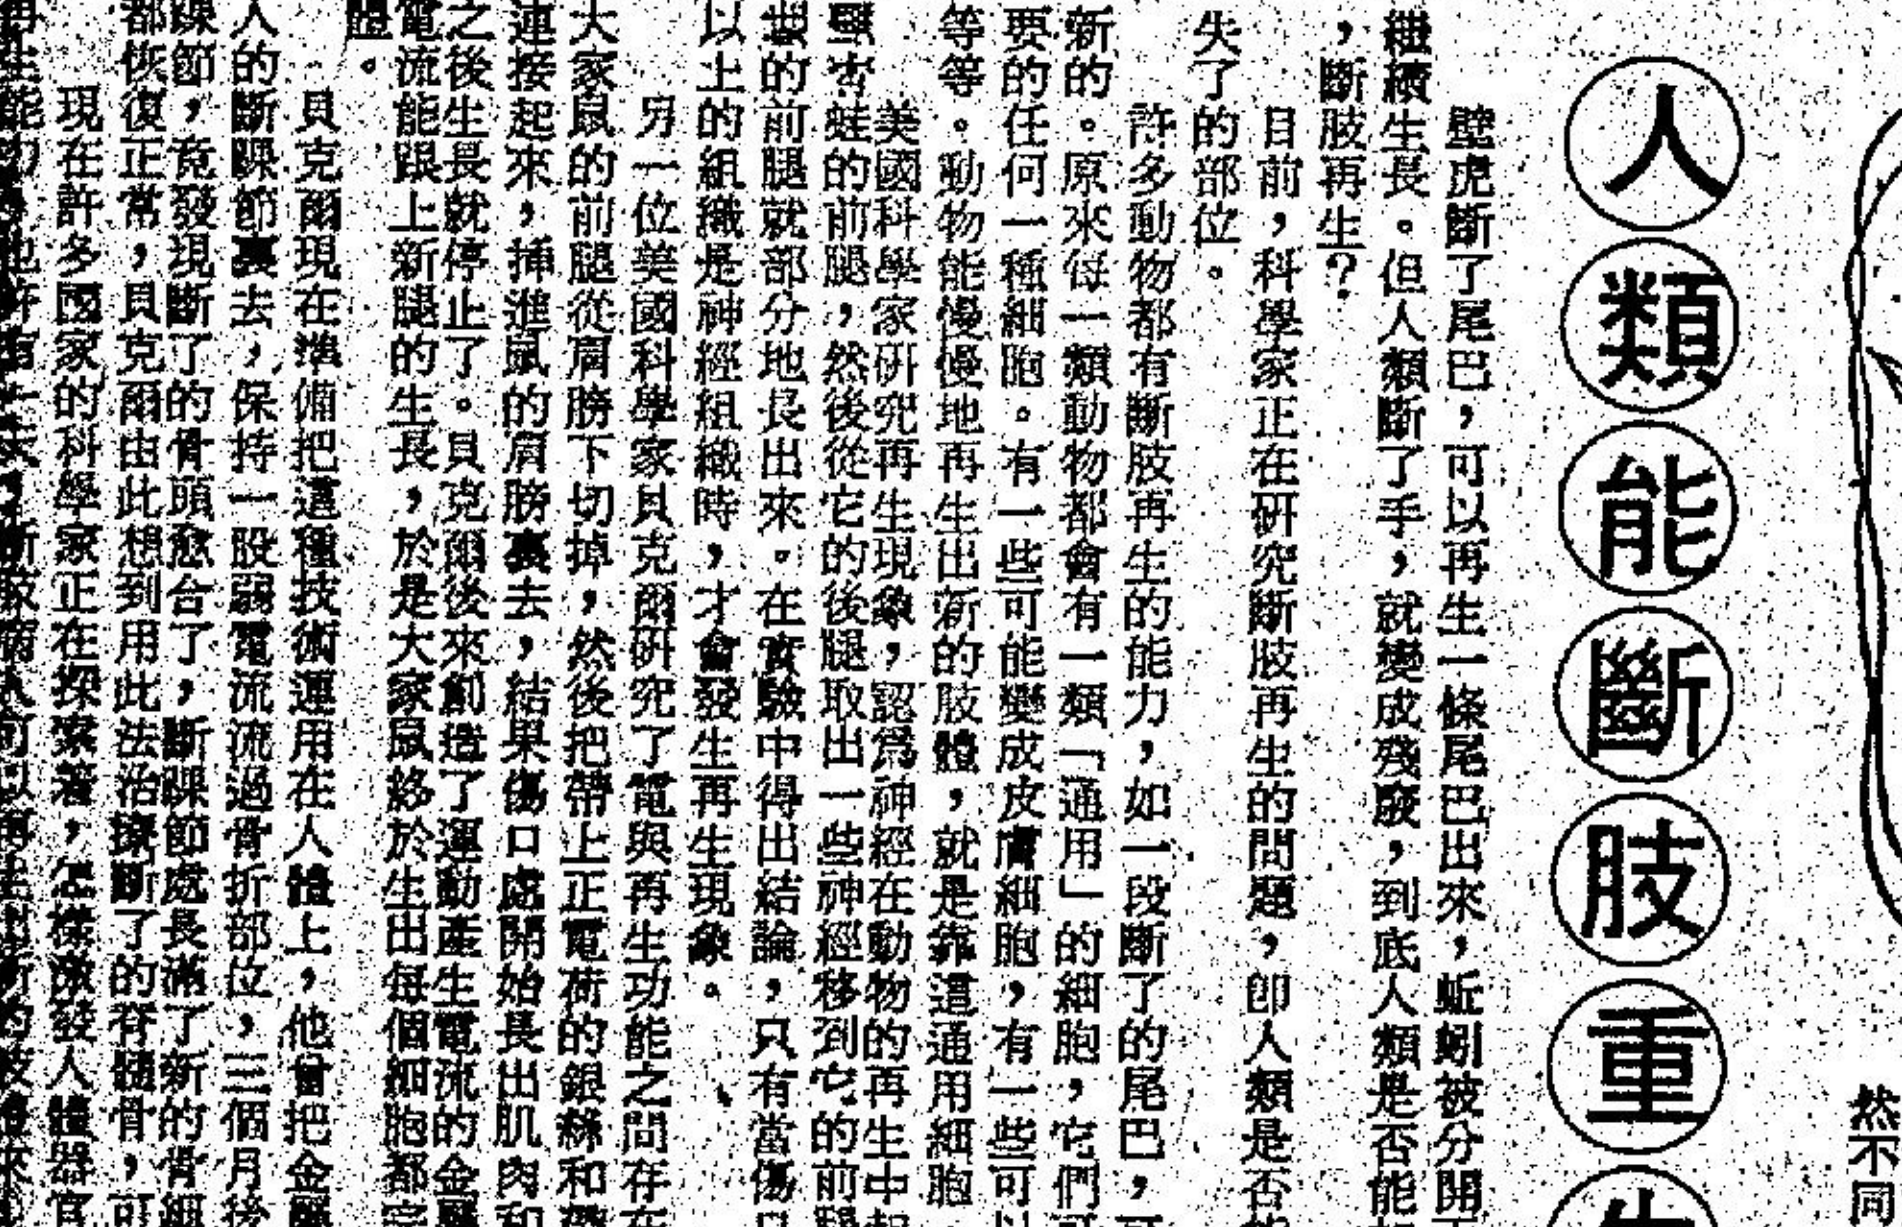 人類能斷肢重生
壁虎斷了尾巴，可以再生一條尾巴出來，蚯蚓被分開
繼續生長。但人類斷了手，就變成殘廢，到底人類是否能
，斷肢再生？
目前，科學家正在研究斷肢再生的問題，卽人類是否
失了的部位。
許多動物都有斷肢再生的能力，如一段斷了的尾巴，
新的。原來每一類動物都會有一類「通用」的細胞，它們
要的任何一種細胞。有一些可能變成皮膚細胞，有一些可
等等。動物能慢慢地再生出新的肢體，就是靠這通用細胞
美國科學家研究再生現象，認爲神經在動物的再生中
青蛙的前腿，然後從它的後腿取出一些神經移到它的前
的前腿就部分地長出來。在實驗中得出結論，只有當傷
以上的組織是神經組織時，才會發生再生現象。
另一位美國科學家貝克爾研究了電與再生功能之間存在
大家鼠的前腿從肩膀下切掉，然後把帶上正電荷的銀絲和
連接起來，揷進鼠的肩膀裏去，結果傷口處開始長出肌肉和
之後生長就停止了。貝克爾後來創造了運動產生電流的金屬
電流能跟上新腿的生長，於是大家鼠終於生出每個細胞都
體。
貝克爾現在準備把這種技術運用在人體上，他曾把金屬
人的斷踝節裏去，保持一股弱電流流過骨折部位，三個月後
踝節，竟發現斷了的骨頭愈合了，斷踝節處長滿了新的骨細
都恢復正常，貝克爾由此想到用此法治療斷了的脊髓骨，可
現在許多國家的科學家正在探索着，怎樣激發人體器官